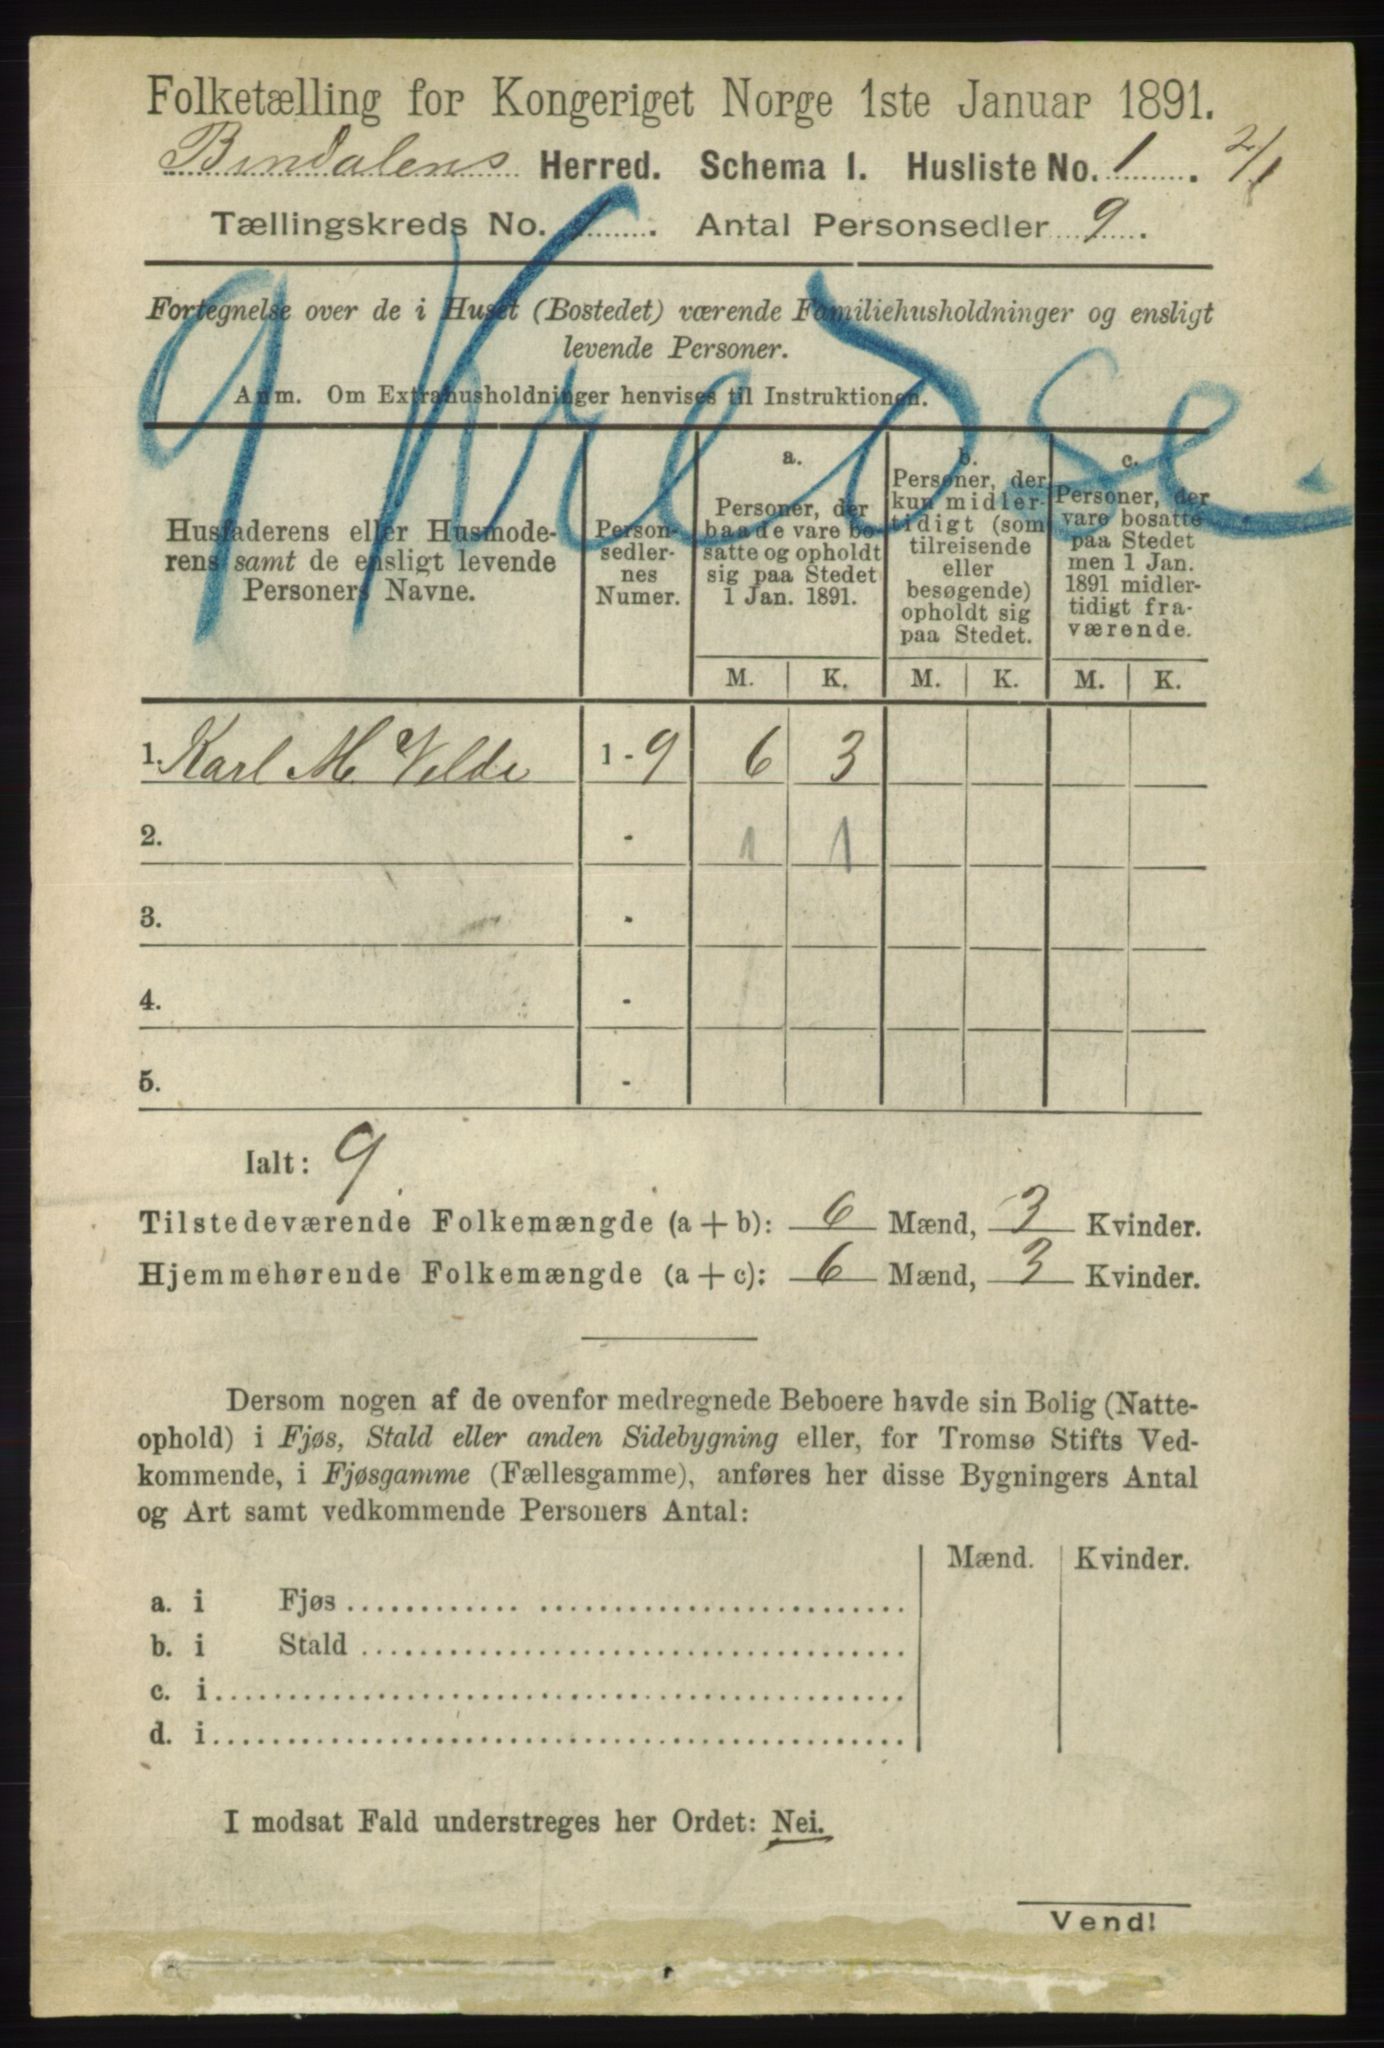 Folketælling for Kongeriget Norge 1ste Januar 1891.
Bindalens Herred. Schema I. Husliste No. 1. 2/1
Tællingskreds No. 1. Antal Personsedler 9.
Fortegnelse over de i Huset (Bostedet) værende Familiehusholdninger og ensligt
levende Personer.
Anm. Om Extrahusholdninger henvises til Instruktionen.
Husfaderens eller Husmode-
rens samt de ensligt levende
Personers Navne.
Person-
sedler-
nes
Numer.
a.
Personer, der
baade vare bo-
satte og opholdt
sig paa Stedet
1 Jan. 1891.
b.
Personer, der
kun midler-
tidigt (som
tilreisende
eller
besøgende)
opholdt sig
paa Stedet.
c.
Personer, der
vare bosatte
paa Stedet
men 1 Jan.
1891 midler-
tidigt fra-
værende.
M. K. M. K. M. K.
1. Karl M Velde 1 - 9 6 3
2. - 1 1
3. -
4. -
5. -
Ialt: 9
Tilstedeværende Folkemængde (a + b): 6 Mænd, 3 Kvinder.
Hjemmehørende Folkemængde (a + c): 6 Mænd, 3 Kvinder.
Dersom nogen af de ovenfor medregnede Beboere havde sin Bolig (Natte-
ophold) i Fjøs, Stald eller anden Sidebygning eller, for Tromsø Stifts Ved-
kommende, i Fjøsgamme (Fællesgamme), anføres her disse Bygningers Antal
og Art samt vedkommende Personers Antal:
Mænd. Kvinder.
a. i Fjøs
b. i Stald
c. i
d. i
I modsat Fald understreges her Ordet: Nei.
Vend!